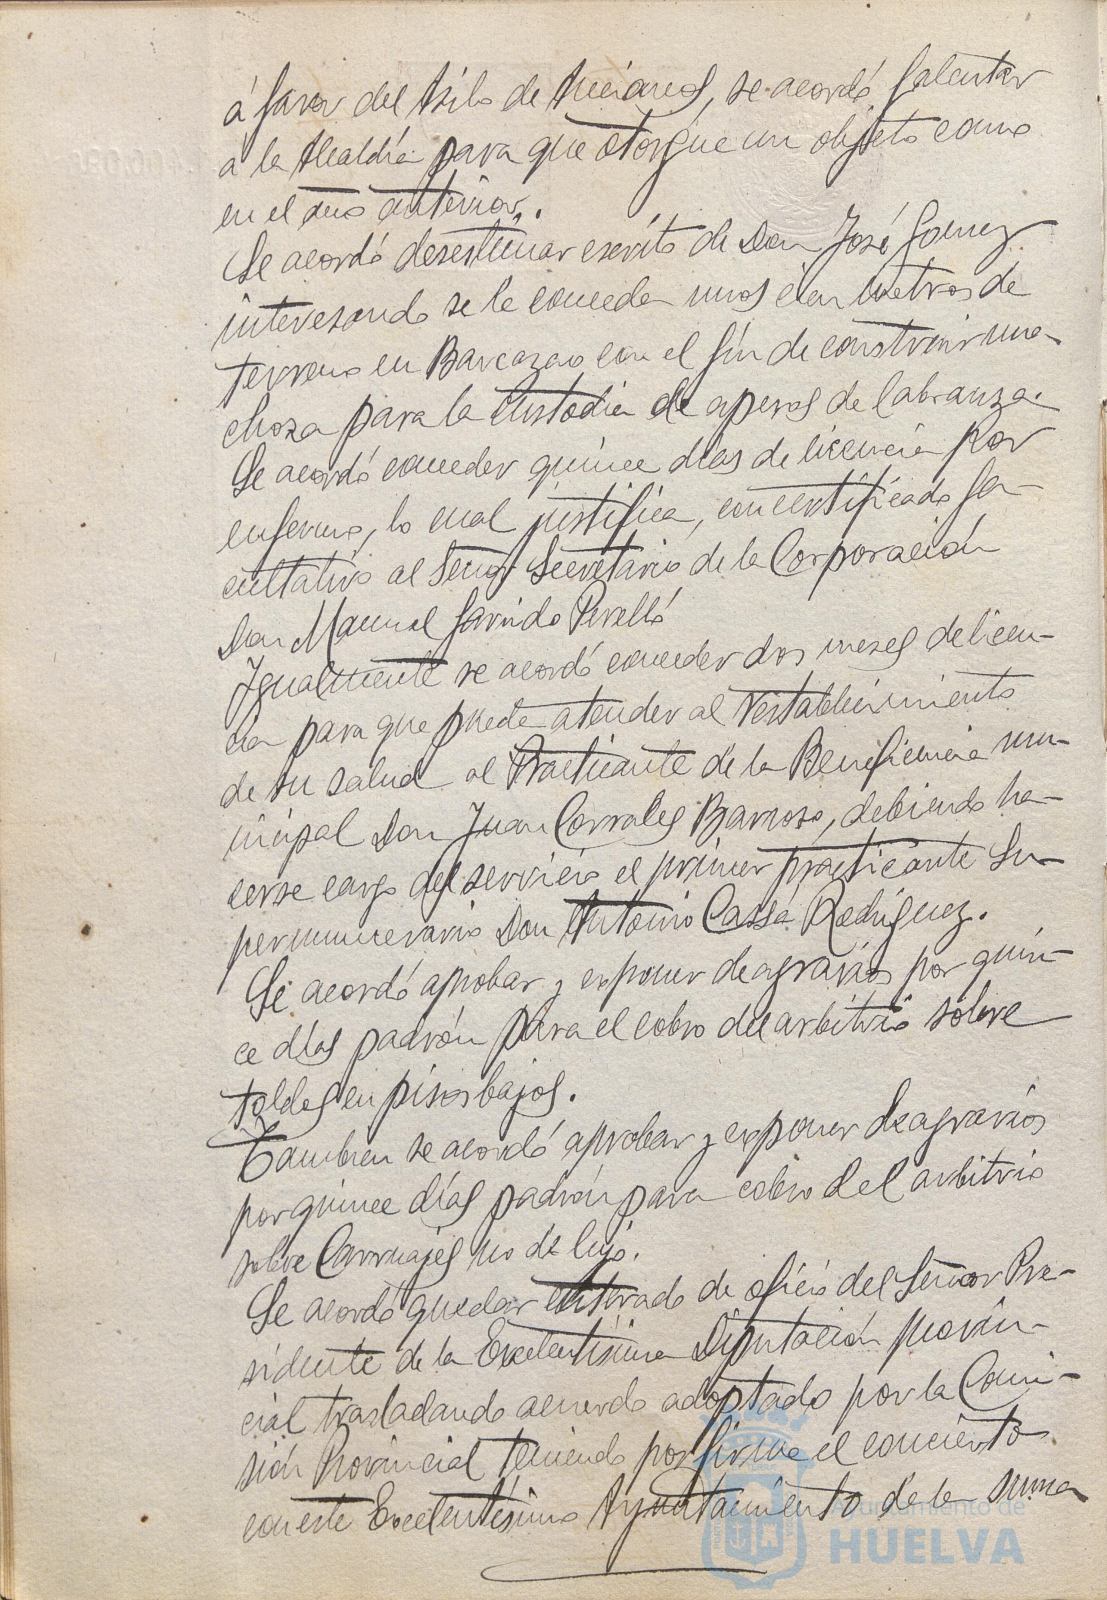 á favor del Asilo de Ancianos, se acordó facultar
a la Alcaldía para que otorgue un objeto como
en el año anterior.
Se acordó desestimar escrito de Don José Gomez
interesando se le conceda unos cien metros de
terreno en con el fin de construir una
choza para la custodia de aperos de labranza.
Se acordó conceder quince dias de licencia por
enfermo, lo cual justifica, con certificado fa-
cultativo al Señor Secretario de la Corporación
Don Manuel Garrido Perelló
Igualmente se acordó conceder dos meses de licen-
cia para que pueda atender al restablecimiento
de su salud al Practicante de la Beneficencia mu-
nicipal Don Juan Corrales Barroso, debiendo ha-
cerse cargo del servicio el primer practicante Su-
pernumerario Don Antonio Cassá Rodríguez.
Se acordó aprobar y exponer de agravios por quin-
ce días padrón para el cobro del arbitrio sobre
toldos en pisos bajos.
Tambien se acordó aprobar y exponer de agravios
por quince días padrón para cobro del arbitrio
sobre Carruajes no de lujo.
Se acordó quedar enterado de oficio del Señor Pre-
sidente de la Excelentísima Diputación provin-
cial trasladando acuerdo adoptado por la Comi-
sión Provincial teniendo por firme el concierto
con este Excelentísimo Ayuntamiento de la suma
Ayuntamiento de
HUELVA